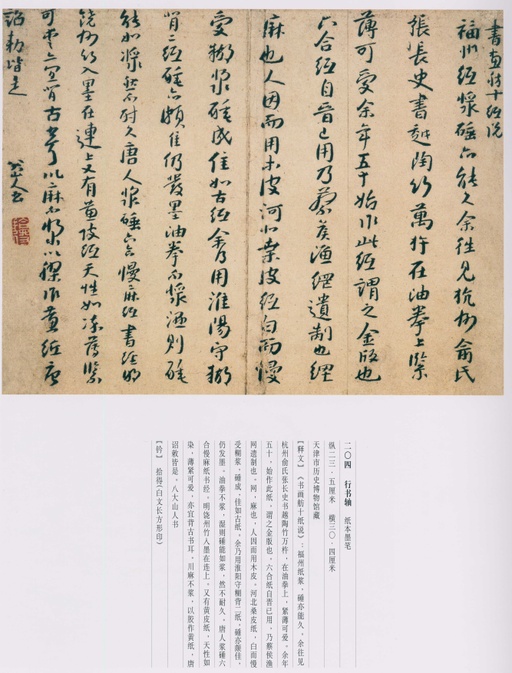 書畫舫十紙說
福州紙漿碓亦能久余往見杭州俞氏
張長史書越陶竹萬杵在油拳上緊
薄可愛余年五十始作此紙謂之金版也
六合紙自晉已用乃蔡侯漁網遺制也網
麻也人因而用木皮河北桑皮紙白而慢
受糊漿碓成佳如古紙余乃用淮陽守糊
背二紙碓亦頗佳仍發墨油拳不漿濕則碓
能如漿然不耐久唐人漿碓六合慢麻紙書經明
饒州竹入墨在連上又有黃皮紙天性如染薄緊
可愛亦宜背古書耳川麻不漿以膠作黃紙唐
詔敕皆是 八大山人書
二〇四 行书轴 纸本墨笔
纵二三·五厘米 横三〇·四厘米
天津市历史博物馆藏
【释文】《书画舫十纸说》：福州纸浆，碓亦能久，余往见
杭州俞氏张长史书越陶竹万杵，在油拳上，紧薄可爱。余年
五十，始作此纸，谓之金版也。六合纸自晋已用，乃蔡侯渔
网遗制也。网，麻也，人因而用木皮。河北桑皮纸，白而慢
受糊浆，碓成，佳如古纸。余乃用淮阳守糊背二纸，碓亦颇佳，
仍发墨。油拳不浆，湿则碓能如浆，然不耐久。唐人浆碓六
合慢麻纸书经。明饶州竹入墨在连上。又有黄皮纸，天性如
染，薄紧可爱，亦宜背古书耳。川麻不浆，以胶作黄纸，唐
诏敕皆是。八大山人书
【钤】 拾得(白文长方形印)